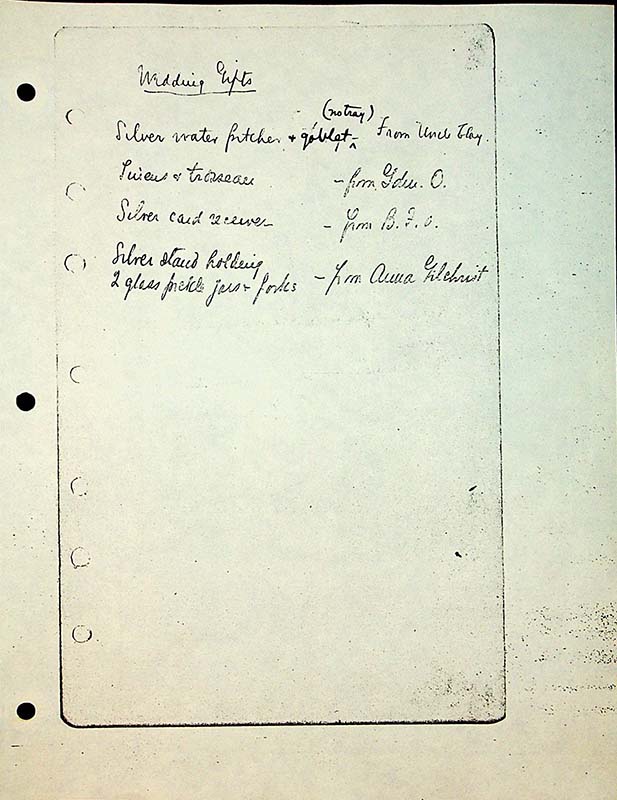 Wedding Gifts
(no tray)
Silver water pitcher + goblet - From Uncle Clay.
Linens & trosseau - from Gden. O.
Silver card receiver - from B. F. O.
Silver stand holding
2 glass pickle jars + forks - from Anna Gilchrist